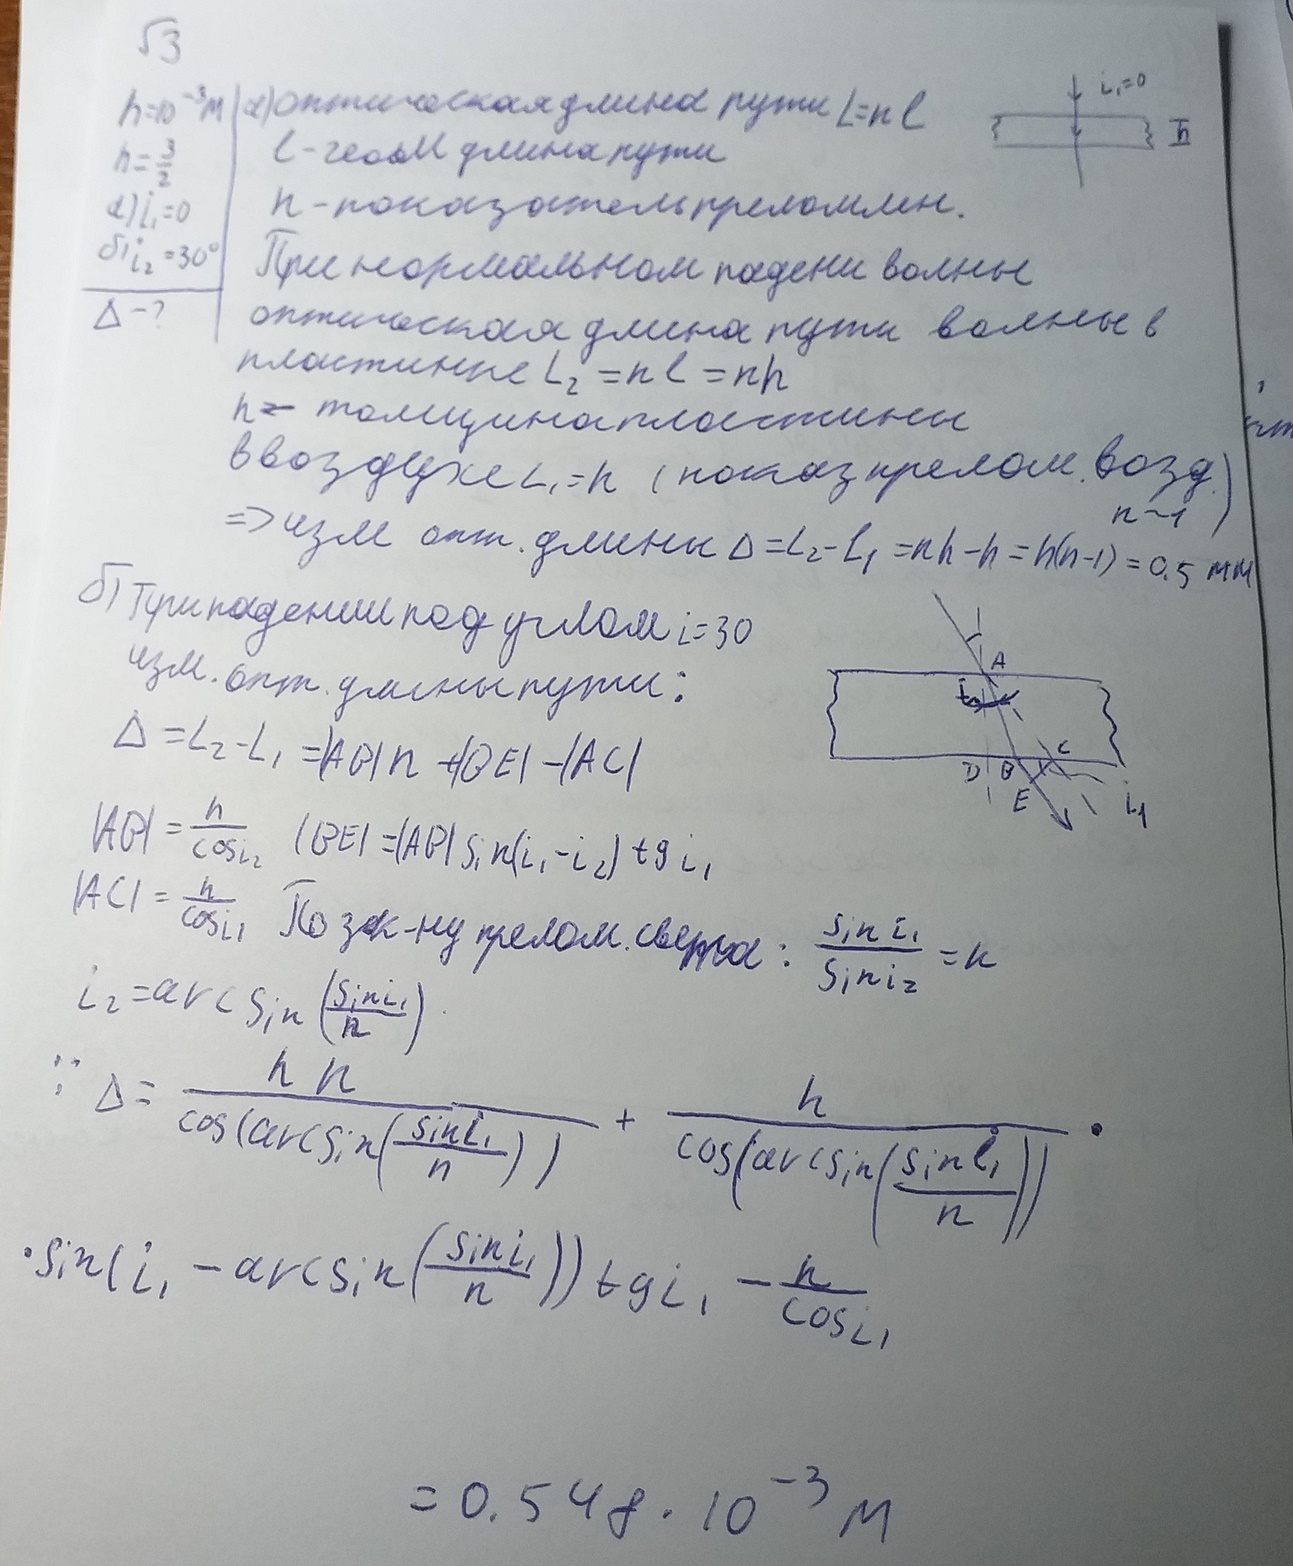 √3
h=10⁻³м
n=3/2
а) i₁=0
б) i₂=30°
Δ-?
а) оптическая длина пути L=nl
i₁=0
h
l-геом длина пути
n-показатель преломлен.
При нормальном падени волны
оптическая длина пути волны в
пластинке L₂=nl=nh
h- толщина пластины
В воздухе L₁=h (показ прелом. возд. n~1)
=> изм опт. длины Δ=L₂-L₁=nh-h=h(n-1)=0.5 мм
б) При падении под углом i=30
изм. опт. длины пути:
A
i₂
D B C
E
i₁
Δ=L₂-L₁=|AB|n+|BE|-|AC|
|AB|=h/cosi₂ |BE|=|AB|sin(i₁-i₂)tgi₁
|AC|=h/cosi₁ По зак-ну прелом. света: sini₁/sini₂=n
i₂=arcsin(sini₁/n).
∵ Δ=hn/cos(arcsin(sini₁/n))+h/cos(arcsin(sini₁/n))·
·sin(i₁-arcsin(sini₁/n))tgi₁-h/cosi₁
=0.548·10⁻³м